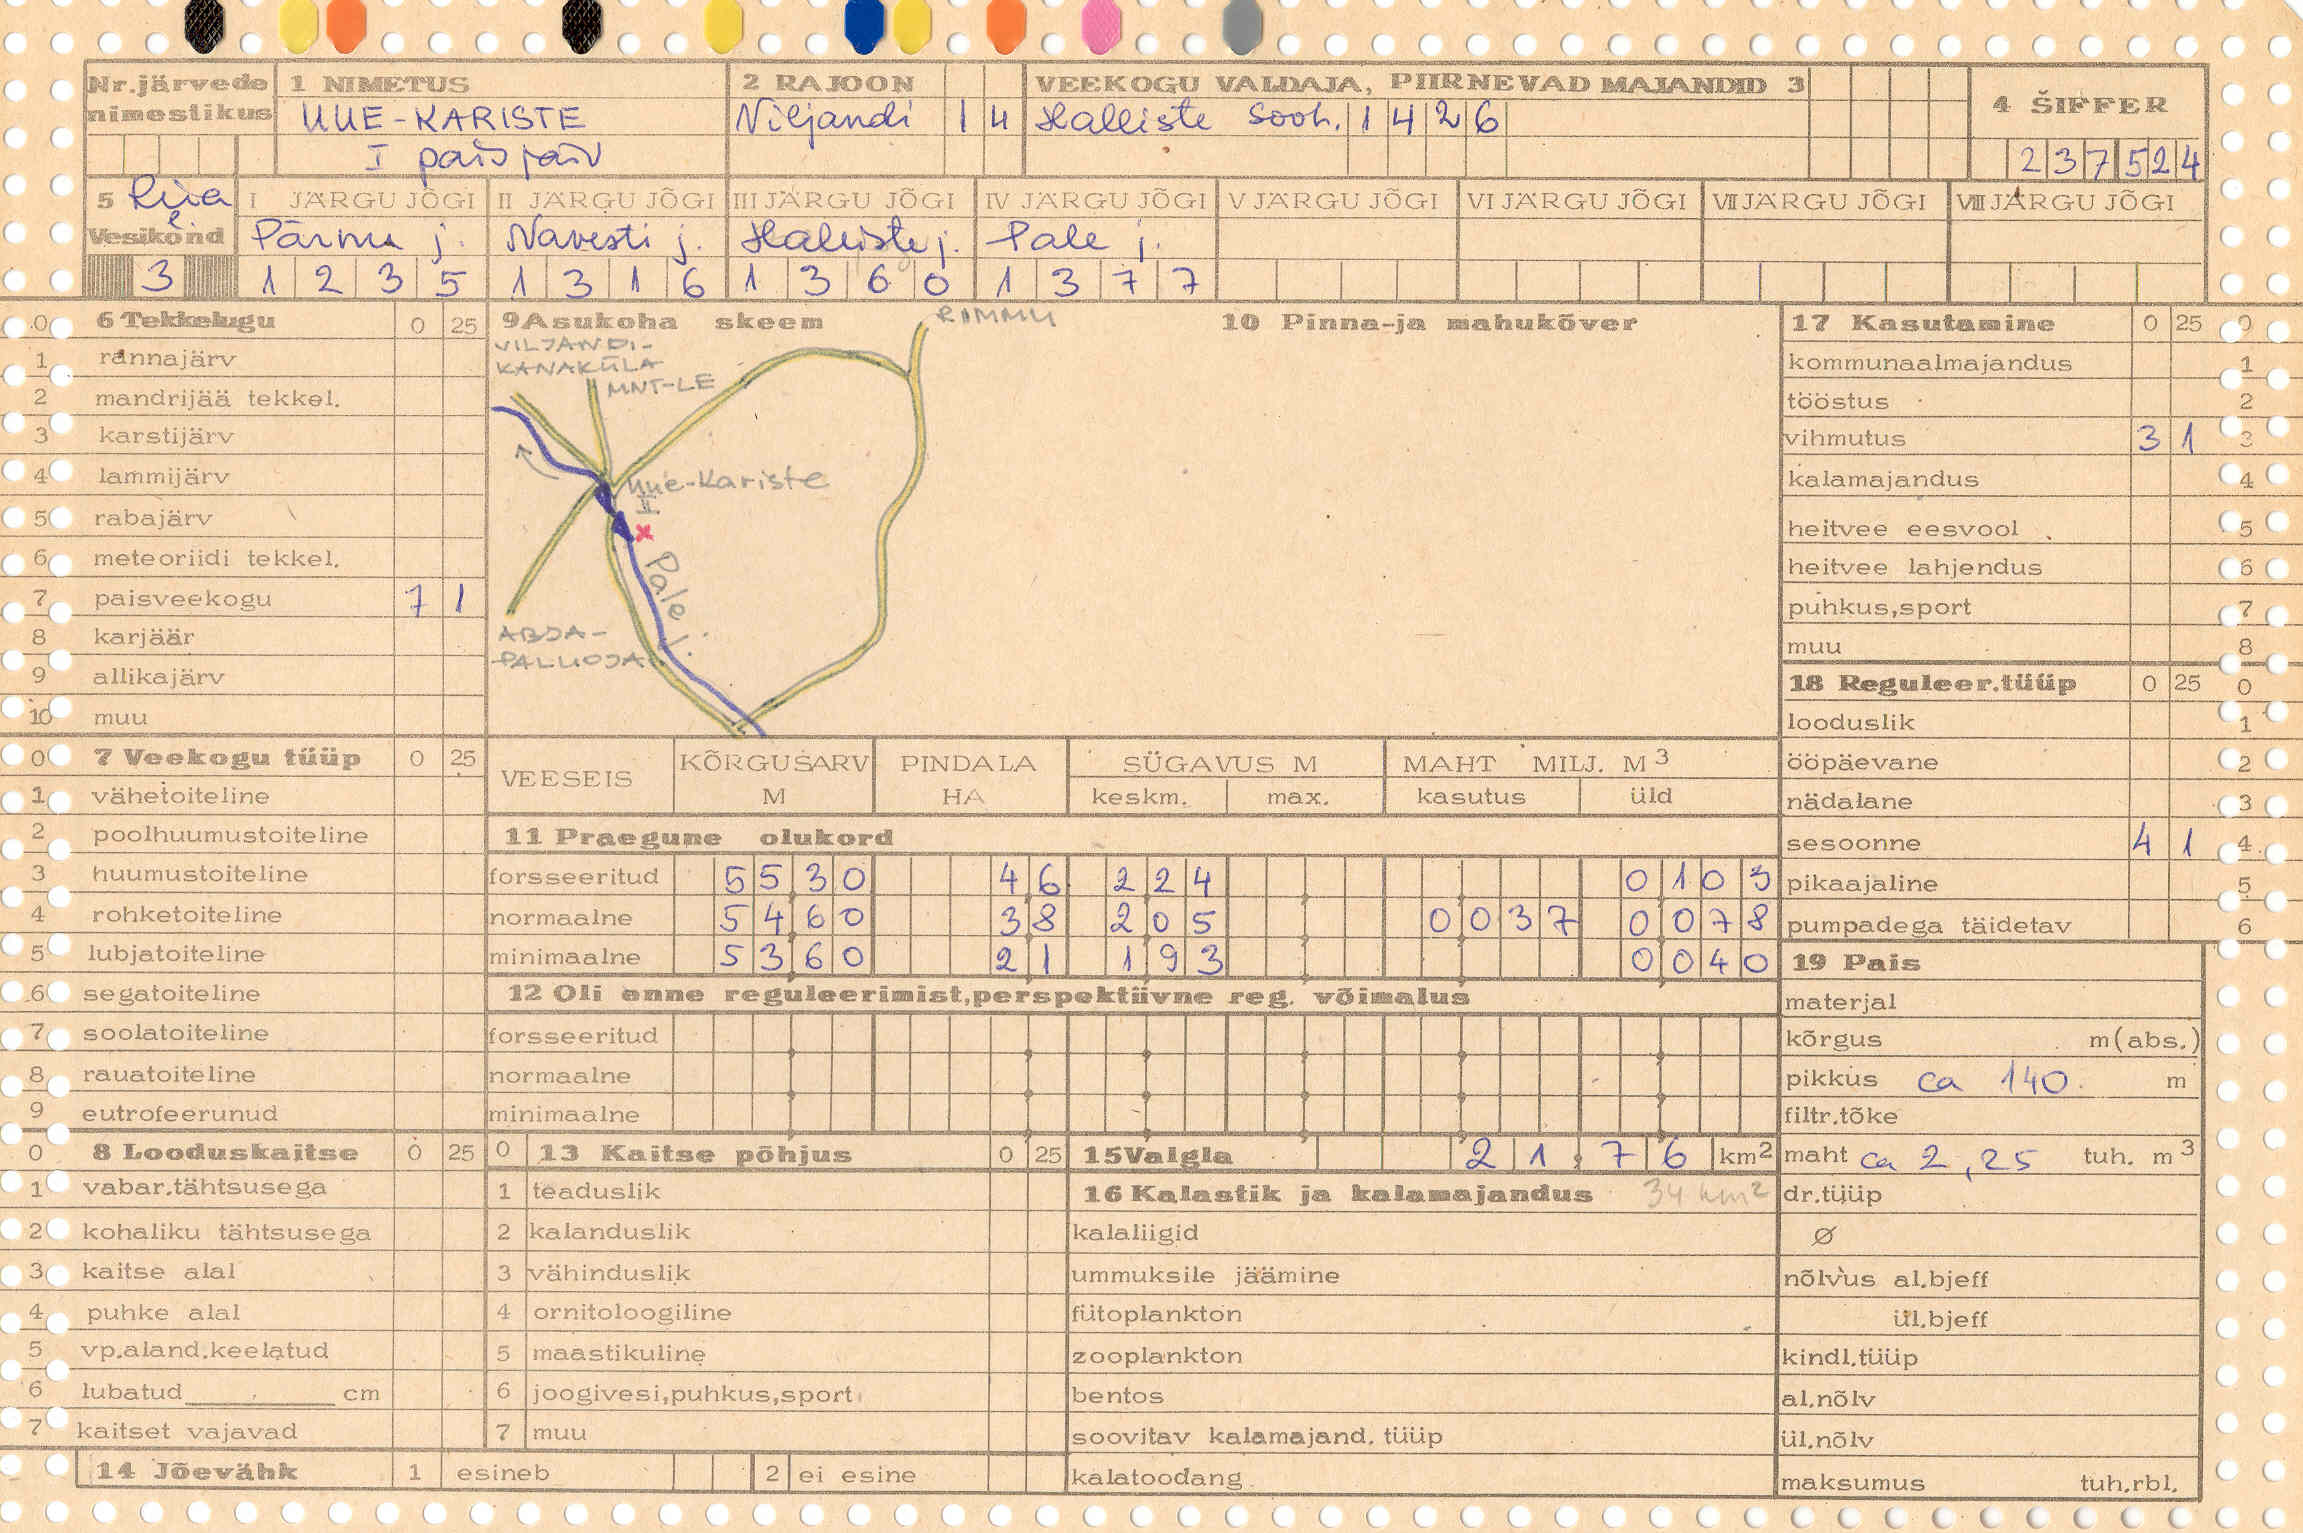 Nr.järvede nimestikus
1 NIMETUS
UUE-KARISTE
I paisjärv
2 RAJOON
Viljandi 14
VEEKOGU VALDAJA, PIIRNEVAD MAJANDID 3
Halliste sooh. 1426
4 ŠIFFER
237524
5 Riia l.
Vesikond
3
I JÄRGU JÕGI
Pärnu j.
1235
II JÄRGU JÕGI
Navesti j.
1316
III JÄRGU JÕGI
Halliste j.
1360
IV JÄRGU JÕGI
Pale j.
1377
V JÄRGU JÕGI
VI JÄRGU JÕGI
VII JÄRGU JÕGI
VIII JÄRGU JÕGI
0 6 Tekkelugu 0 25
1 rannajärv
2 mandrijää tekkel.
3 karstijärv
4 lammijärv
5 rabajärv
6 meteoriidi tekkel.
7 paisveekogu 7 1
8 karjäär
9 allikajärv
10 muu
0 7 Veekogu tüüp 0 25
1 vähetoiteline
2 poolhuumustoiteline
3 huumustoiteline
4 rohketoiteline
5 lubjatoiteline
6 segatoiteline
7 soolatoiteline
8 rauatoiteline
9 eutrofeerunud
0 8 Looduskaitse 0 25
1 vabar.tähtsusega
2 kohaliku tähtsusega
3 kaitse alal
4 puhke alal
5 vp.aland.keelatud
6 lubatud cm
7 kaitset vajavad
14 Jõevähk 1 esineb 2 ei esine
9 Asukoha skeem
VILJANDI-
KANAKÜLA
MNT-LE
RIMMU
Uue-Kariste
II
Pale j.
ABJA-
PALUOJA
10 Pinna-ja mahukõver
VEESEIS
KÕRGUSARV M
PINDALA HA
SÜGAVUS M
keskm. max.
MAHT MILJ. M3
kasutus üld
11 Praegune olukord
forsseeritud 5530 46 224 0103
normaalne 5460 38 205 0037 0078
minimaalne 5360 21 193 0040
12 Oli enne reguleerimist,perspektiivne reg. võimalus
forsseeritud
normaalne
minimaalne
0 13 Kaitse põhjus 0 25
1 teaduslik
2 kalanduslik
3 vähinduslik
4 ornitoloogiline
5 maastikuline
6 joogivesi,puhkus,sport
7 muu
15 Valgla 21,76 km2
16 Kalastik ja kalamajandus 34 km2
kalaliigid
ummuksile jäämine
fütoplankton
zooplankton
bentos
soovitav kalamajand. tüüp
kalatoodang
17 Kasutamine 0 25 0
kommunaalmajandus 1
tööstus 2
vihmutus 3 1 3
kalamajandus 4
heitvee eesvool 5
heitvee lahjendus 6
puhkus,sport 7
muu 8
18 Reguleer.tüüp 0 25 0
looduslik 1
ööpäevane 2
nädalane 3
sesoonne 4 1 4
pikaajaline 5
pumpadega täidetav 6
19 Pais
materjal
kõrgus m(abs.)
pikkus ca 140 m
filtr.tõke
maht ca 2,25 tuh. m3
dr.tüüp
Ø
nõlvus al.bjeff
ül.bjeff
kindl.tüüp
al.nõlv
ül.nõlv
maksumus tuh.rbl.